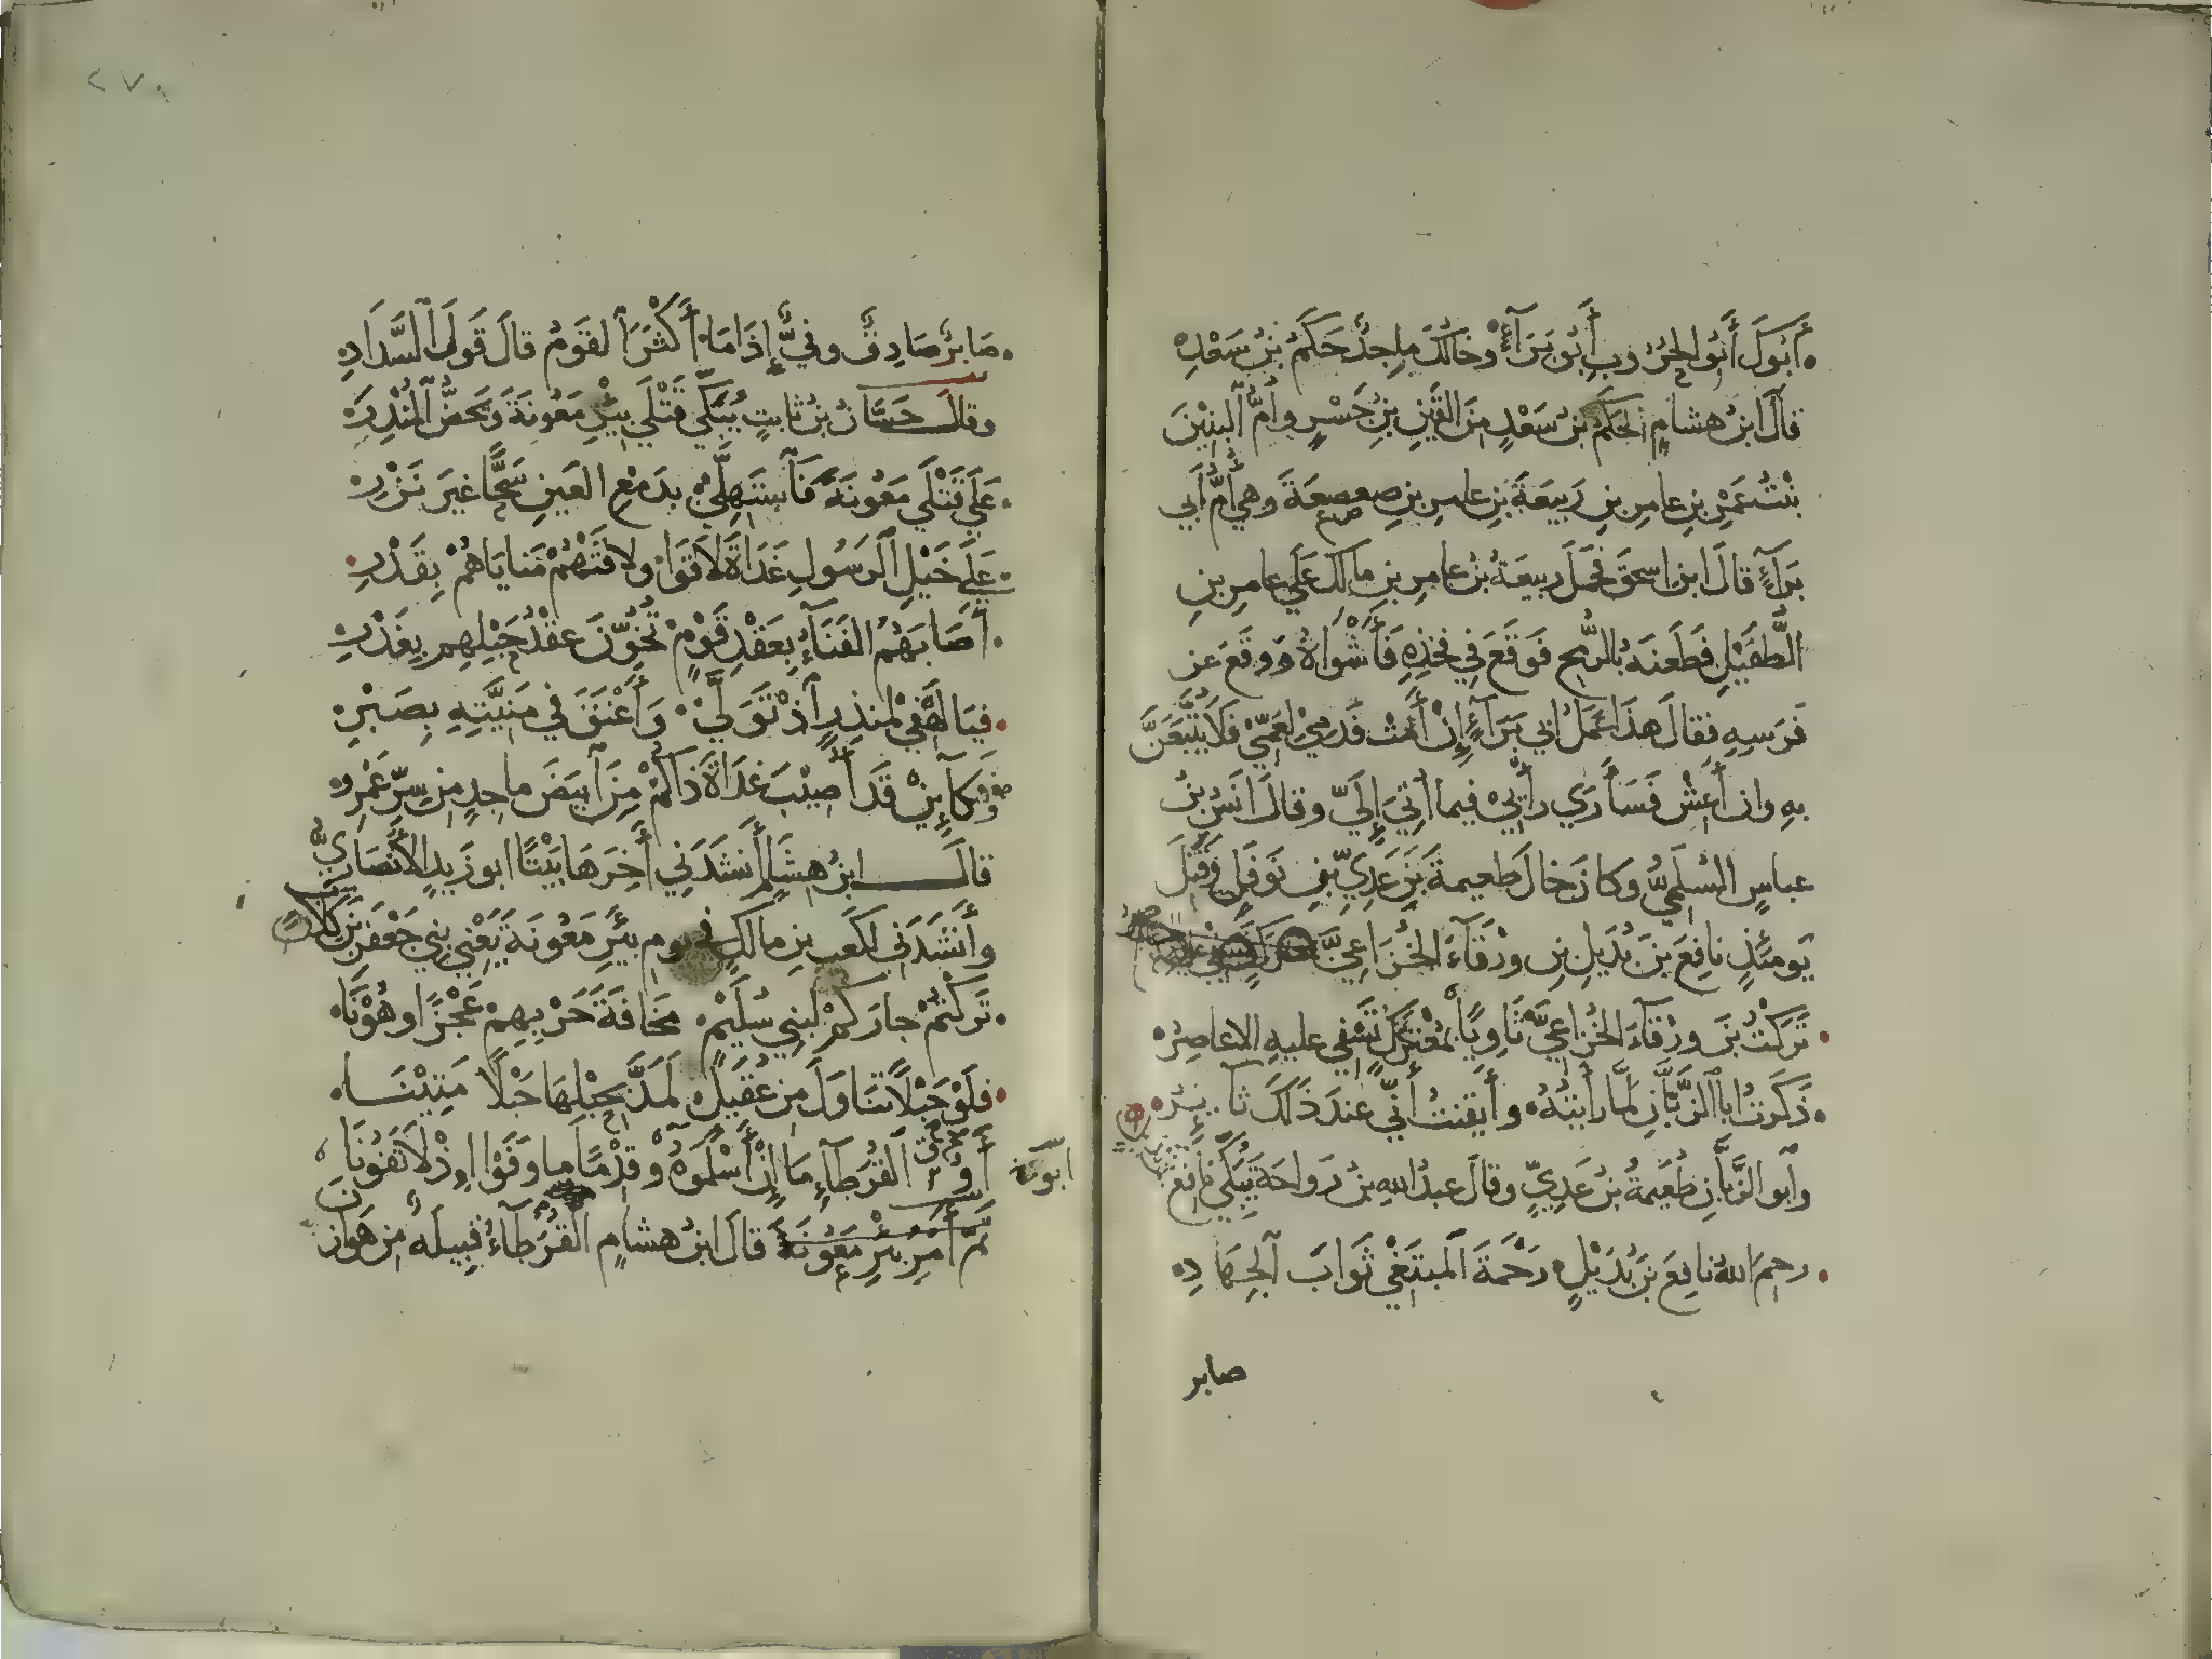 أَبُوكَ أَبُو الحُرُوبِ أَبُو بَرَآءٍ وخَالُكَ ماجِدٌ حَكَمُ بنُ سَعْدِ
قالَ ابنُ هشامٍ الحَكَمُ بنُ سَعْدٍ مِنَ القَيْنِ بنِ جَسْرٍ وأُمُّ البَنِيْنَ
بنتُ عَمْرِو بنِ عامِرِ بنِ رَبِيعَةَ بنِ عامرِ بنِ صعصعَةَ وهي أُمُّ أَبي
بَرَآءٍ قالَ ابن اسحقَ فحَمَلَ ربيعَةُ بنُ عامِرِ بنِ مالكٍ عَلَي عامِرِ بنِ
الطُّفَيْلِ فَطَعنَهُ بالرُّمحِ فَوَقَعَ في فَخِذِهِ فَأَشْوَاهُ ووَقَعَ عن
فَرَسِهِ فقالَ هذَا عَمَلُ أبي بَرَآءٍ إِنْ أَمُتْ فَدَمِيْ لِعَمِّيْ فَلاَ يُتْبَعَنَّ
بهِ وان أَعِشْ فَسَأَرَي رأيِيْ فيما أُتِيَ إِلَيَّ وقالَ أنسُ بنُ
عباسٍ السُلَمِيُّ وكانَ خالَ طعيمةَ بنِ عَدِيِّ بنِ نَوفَلٍ وقَتَلَ
يَومئذٍ نافِعَ بنَ بُدَيلِ بنِ ورْقَآءَ الخُزَاعِيَّ
تَرَكْتُ بنَ ورْقَآءَ الخُزَاعِيَّ ثَاوِيًا بِمُعْتَرَكٍ تَسْفِي عليهِ الاعاصِرُ
ذَكَرتُ ابا الزَّبَّانِ لمَّا رأيتُهُ وأَيقَنتُ أنّي عندَ ذَلكَ ثَآئِرُ
وأبو الزَّبَّانِ طُعَيْمَةُ بنُ عَدِيٍّ وقالَ عبدُ اللهِ بنُ رَواحةَ يُبَكِّي نافِعَ
رحِمَ اللهُ نافِعَ بنَ بُدَيْلٍ رَحْمَةَ المُبْتَغِي ثَوَابَ الجِهَادِ
صابر
صَابِرٌ صَادِقٌ وفيٌّ إِذَا مَا أَكْثَرَ القَومُ قالَ قَولَ السَّدَادِ
وقالَ حسَّانُ بنُ ثابتٍ يُبَكِّي قَتْلَي بِئرِ مَعُونةَ ويَخُصُّ المُنْذِرَ
عَلَي قَتْلَي مَعُونَةَ فَاسْتَهِلِّي بدَمْعِ العَينِ سَحًّا غيرَ نَزْرِ
علَي خَيْلِ الرَسُولِ غَدَاةَ لاَقَوْا ولاقَتْهُمْ مَنايَاهُمْ بِقَدْرِ
أَصَابَهُمُ الفَنَآءُ بِعَقْدِ قَوْمٍ تُخُوِّنَ عقْدُ حَبْلِهِم بِغَدْرِ
فيَا لَهْفِيْ لِمُنذِرٍ اذْ تَوَلَّيْ وَأَعْنَقَ في مَنِيَّتِهِ بِصَبْرِ
وكَآئِنْ قَدْ أُصِيْبَ غَدَاةَ ذَاكُمْ مِنَ آبيَضَ ماجِدٍ مِن سِرِّ عَمْرِو
قالَ ابنُ هِشَامٍ أَنشَدَنِي أَخِرَهَا بَيْتًا ابو زَيدٍ الأَنْصَارِيُّ
وأَنْشَدَني لكَعبِ بنِ مالكٍ في يومِ بئرِ مَعُونَةَ يَعْنِي بني جَعْفَرِ بنِ كِلابٍ
تَرَكْتُمْ جارَكُمْ لبَنِي سُلَيْمٍ مَخَافَةَ حَرْبِهِمْ عَجْزًا وهُوْنَا
فلَوْ حَبْلاً تَنَاوَلَ مِن عُقَيلٍ لَمَدَّ بِحَبْلِهَا حَبْلاً مَتِيْنَا
أَوِ القُرَطَآءِ مَا إِنْ أَسْلَمُوْهُ وقِدْمًا ما وَفَوْا اِذْ لاَ تَفُوْنَا
تمَّ أَمْرُ بِئْرِ مَعُونَةَ قالَ ابنُ هشامٍ القُرَطَآءُ قبيلَه مِن هَوازِنَ